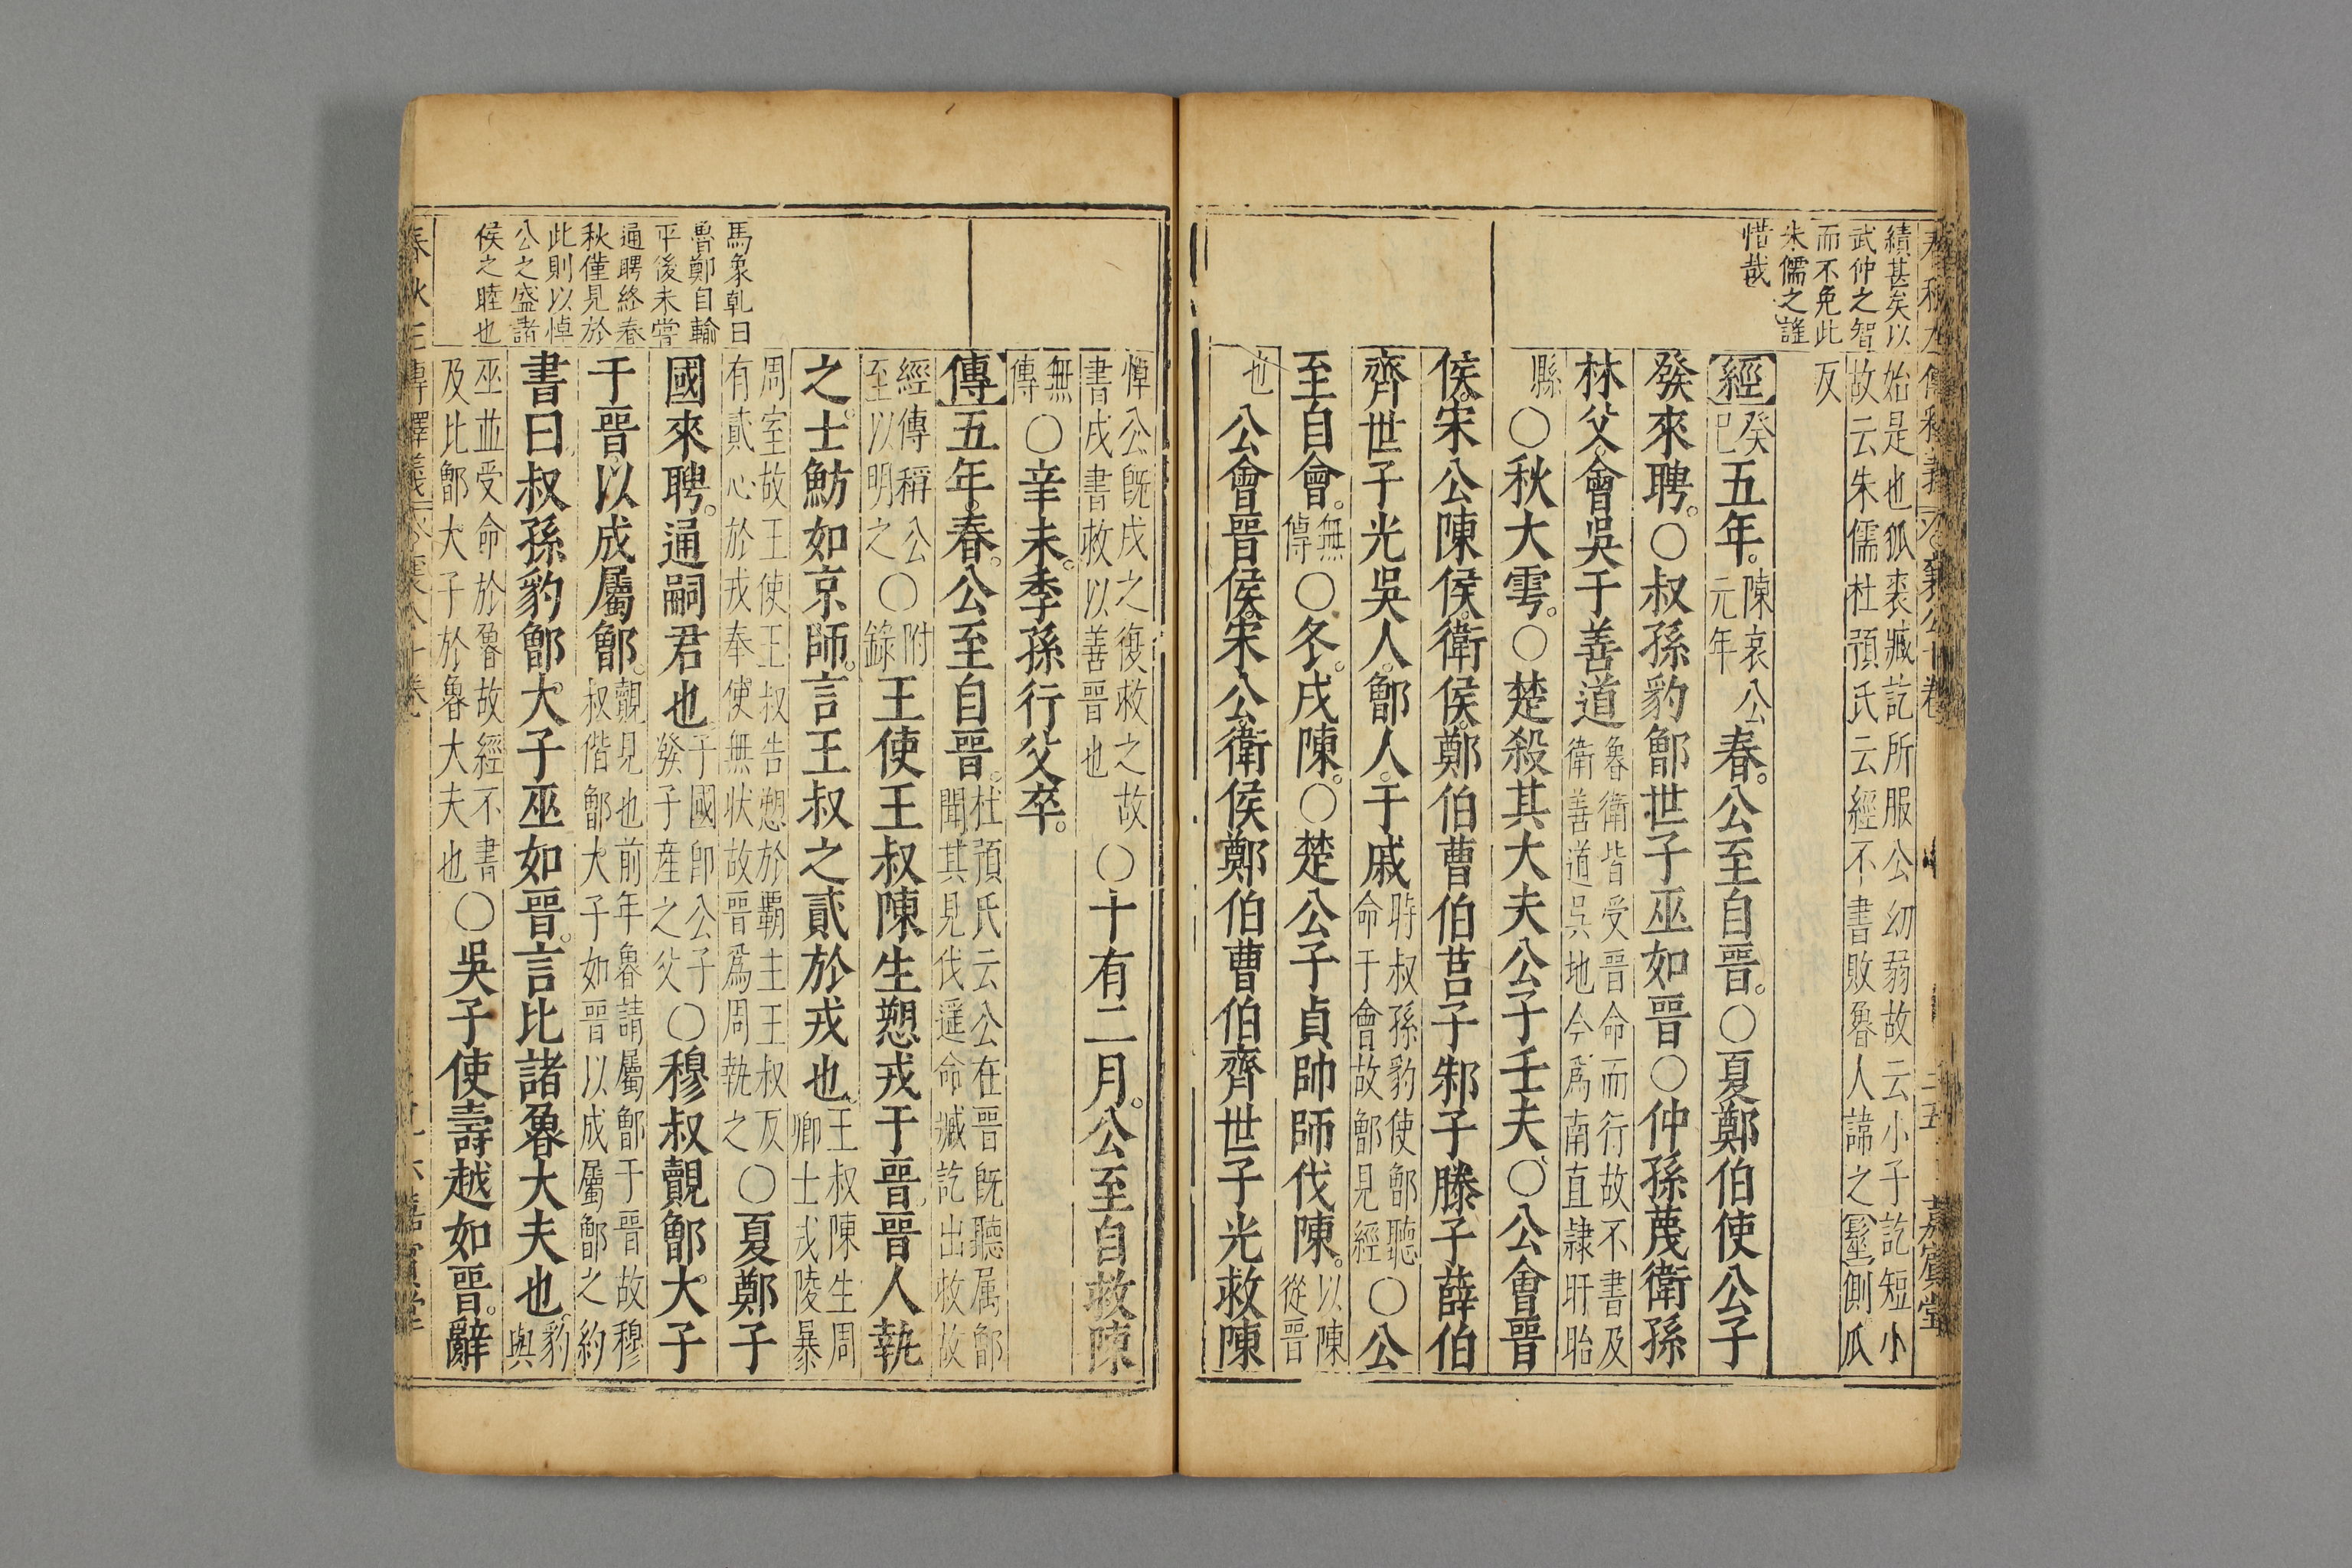 績甚矣以
武仲之智
而不免此
朱儒之誰
惜哉
始是也狐裘臧訖所服公幼弱故云小子訖短小
故云朱儒杜預氏云經不書敗魯人諱之髽側瓜
反
經癸巳五年陳哀公元年春公至自晉○夏鄭伯使公子
發來聘○叔孫豹鄫世子巫如晉○仲孫蔑衛孫
林父會吳于善道魯衛皆受晉命而行故不書及衛善道吳地今為南直隷盱眙
縣○秋大雩○楚殺其大夫公子壬夫○公會晉
侯宋公陳侯衛侯鄭伯曹伯莒子邾子滕子薛伯
齊世子光吳人鄫人于戚時叔孫豹使鄫聽命于會故鄫見經○公
至自會無傳○冬戍陳○楚公子貞帥師伐陳以陳從晉
也公會晉侯宋公衛侯鄭伯曹伯齊世子光救陳
悼公既戍之復救之故書戍書救以善晉也○十有二月公至自救陳
無傳○辛未季孫行父卒
傳五年春公至自晉杜預氏云公在晉既聽属鄫聞其見伐遥命臧訖出救故
經傳稱公至以明之○附錄王使王叔陳生愬戎于晉晉人執
之士魴如京師言王叔之貳於戎也王叔陳生周卿士戎陵暴
周室故王使王叔告愬於覇主王叔反有貳心於戎奉使無状故晉為周執之○夏鄭子
國來聘通嗣君也子國即公子發子産之父○穆叔覿鄫大子
于晉以成屬鄫覿見也前年魯請屬鄫于晉故穆叔偕鄫大子如晉以成屬鄫之約
書曰叔孫豹鄫大子巫如晉言比諸魯大夫也豹與
巫並受命於魯故經不書及比鄫大子於魯大夫也○吳子使壽越如晉辭
馬象乾曰
魯鄭自輸
平後未嘗
通聘終春
秋僅見於
此則以悼
公之盛諸
侯之睦也